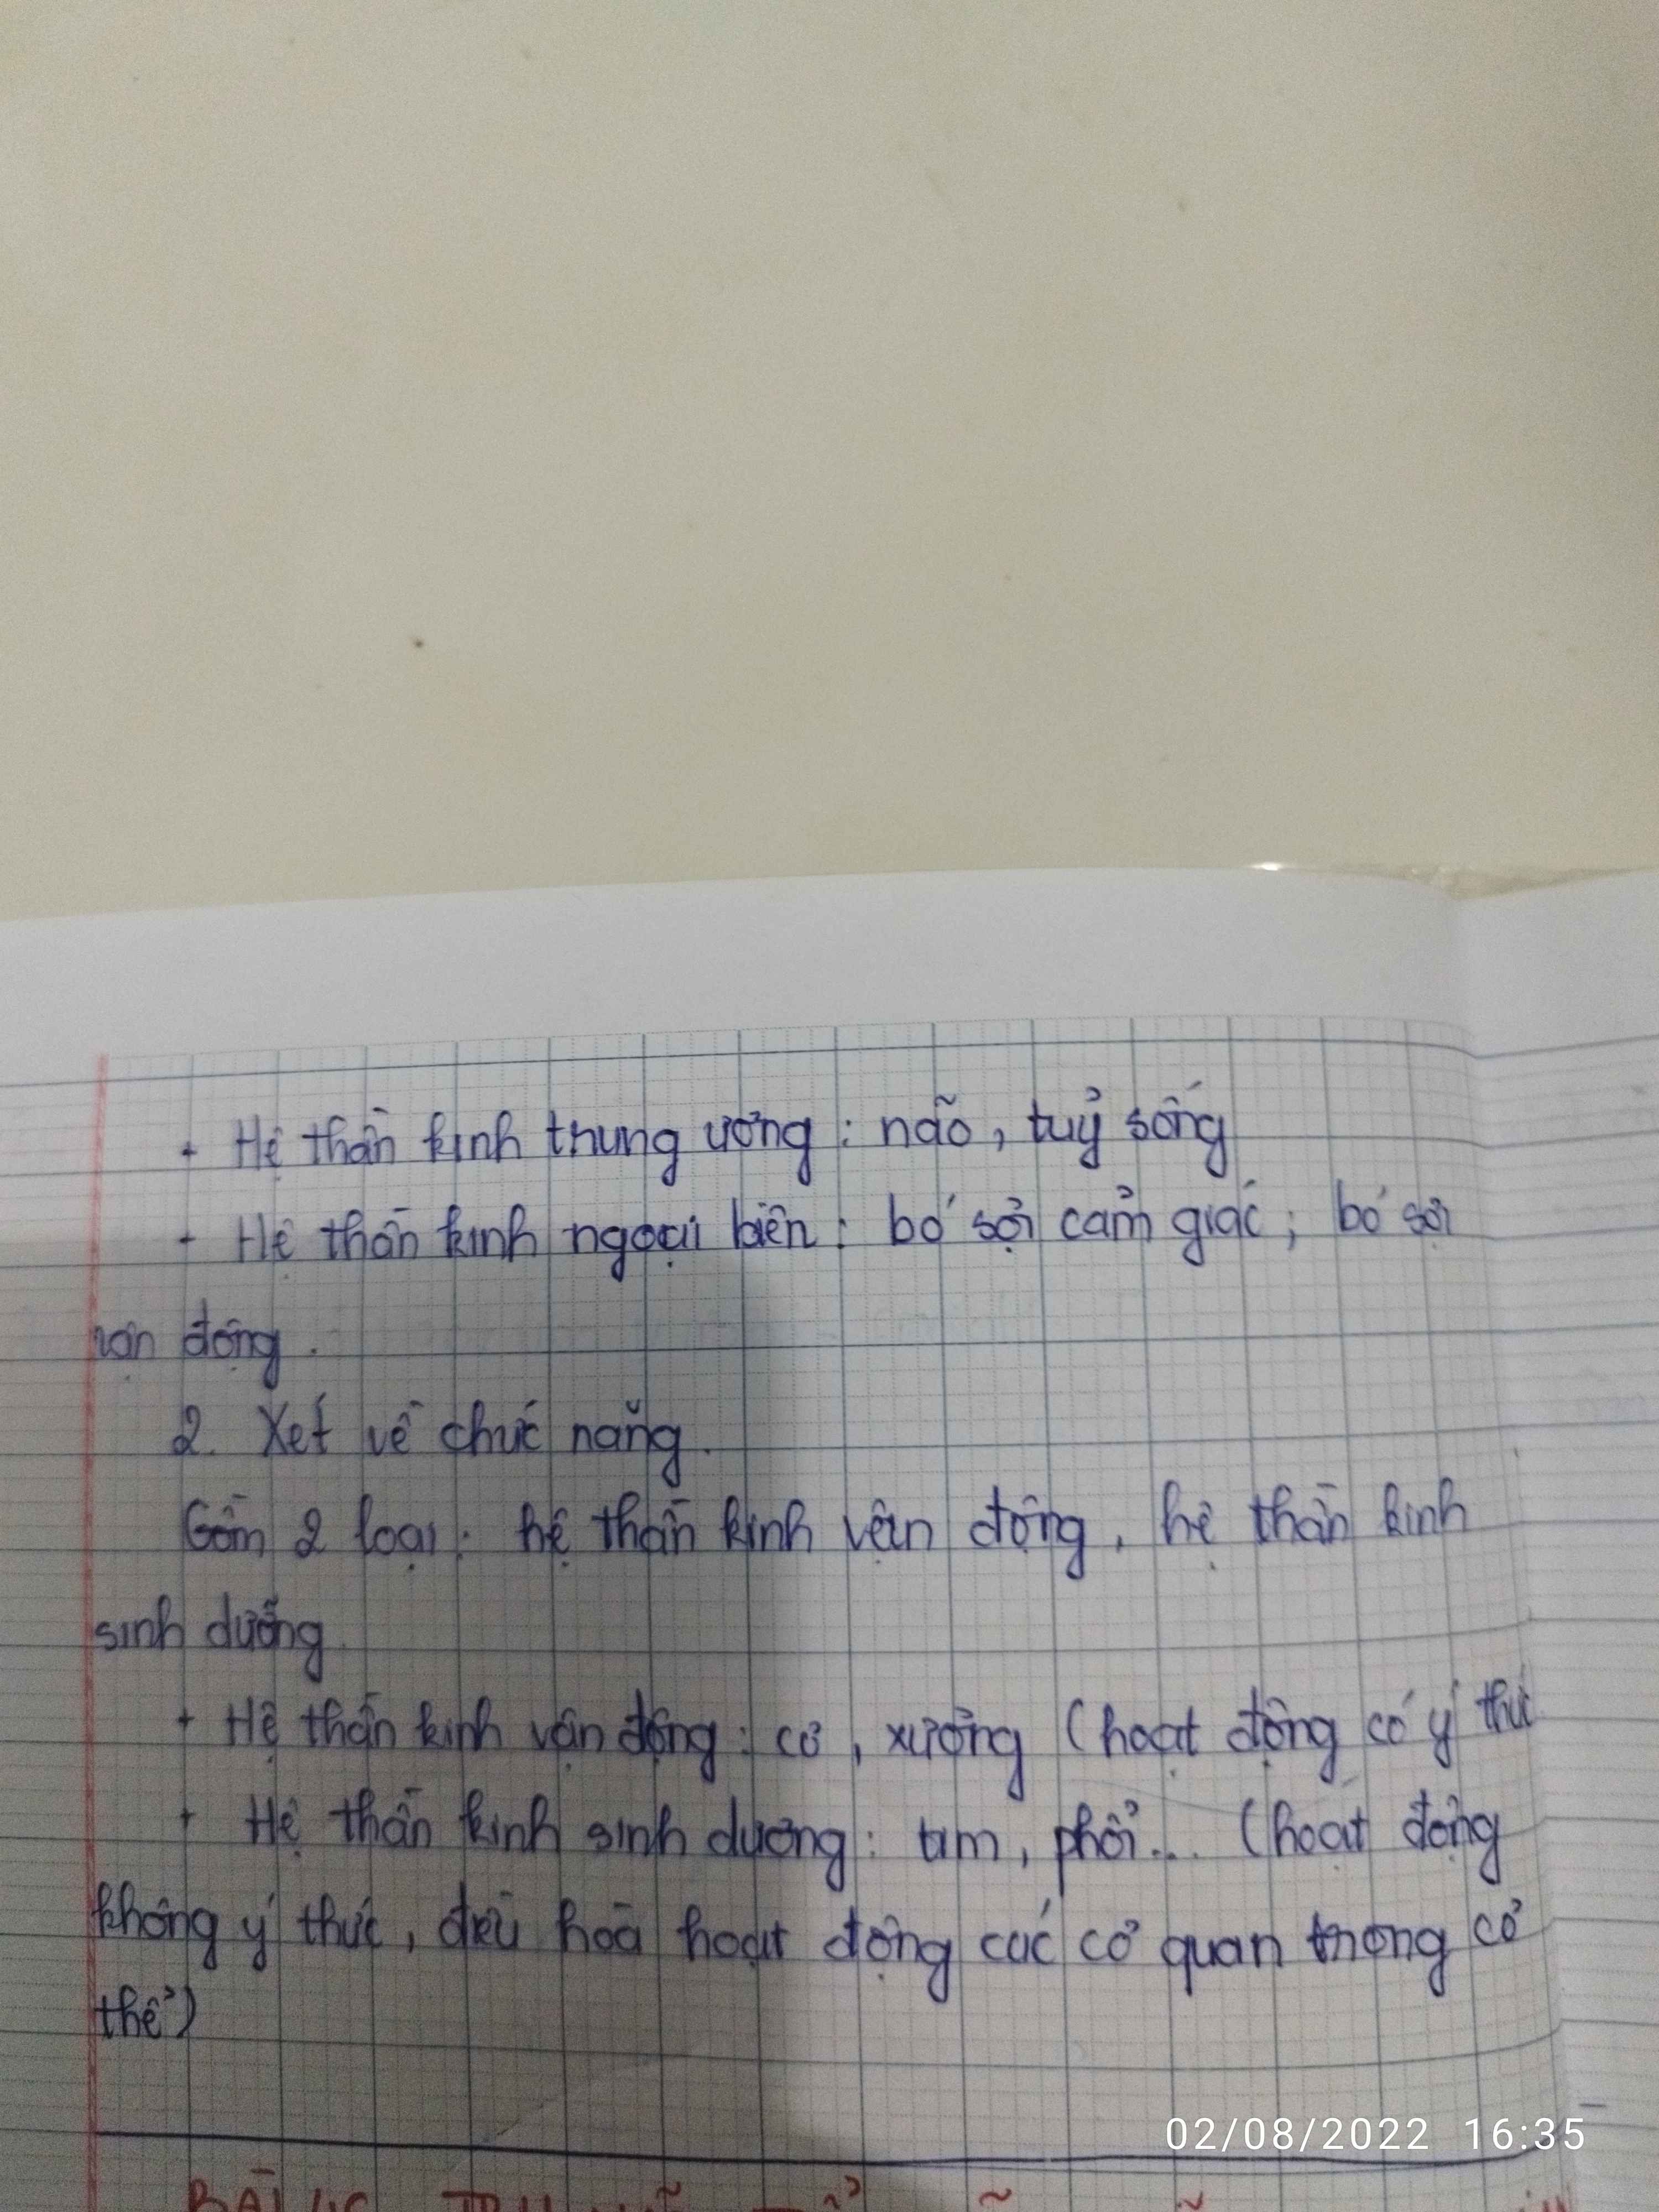 + Hệ thần kinh trung ương : não, tuỷ sống
+ Hệ thần kinh ngoại biên : bó sợi cảm giác ; bó sợi
vận động .
2. Xét về chức năng.
Gồm 2 loại : hệ thần kinh vận động, hệ thần kinh
sinh dưỡng.
+ Hệ thần kinh vận động : cơ , xương (hoạt động có ý thức
+ Hệ thần kinh sinh dưỡng : tim, phổi... (hoạt động
không ý thức, điều hoà hoạt động các cơ quan trong cơ
thể)
02/08/2022 16:35
BÀI